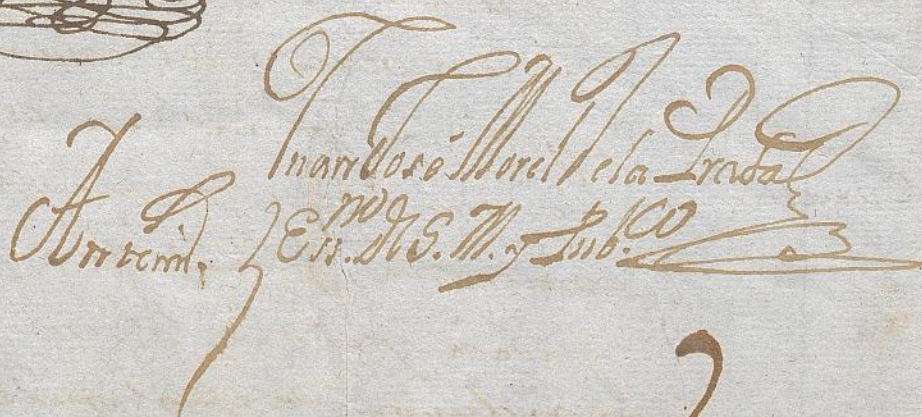 Juan José Morel de la Prada
Ante mi, Ess.no de S. M. y Pub.co